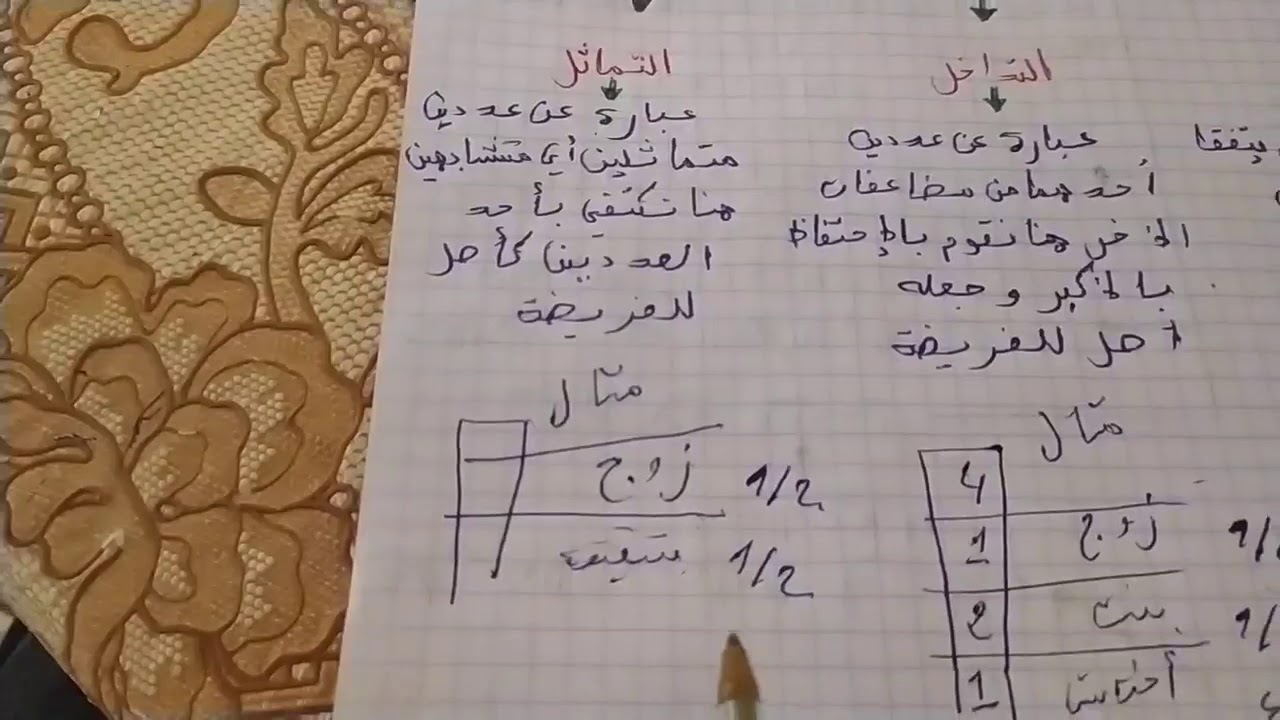 التداخل
عبارة عن عددين
أحدهما من مضاعفات
الاخر هنا نقوم بالإحتفاظ
بالاكبر وجعله
أصل للفريضة
مثال
4
1 زوج
2 بنت
1
التماثل
عبارة عن عددين
متماثلين أي متشابهين
هنا نكتفي بأحد
العددين كأصل
للفريضة
مثال
زوج 1/2
شقيقة 1/2